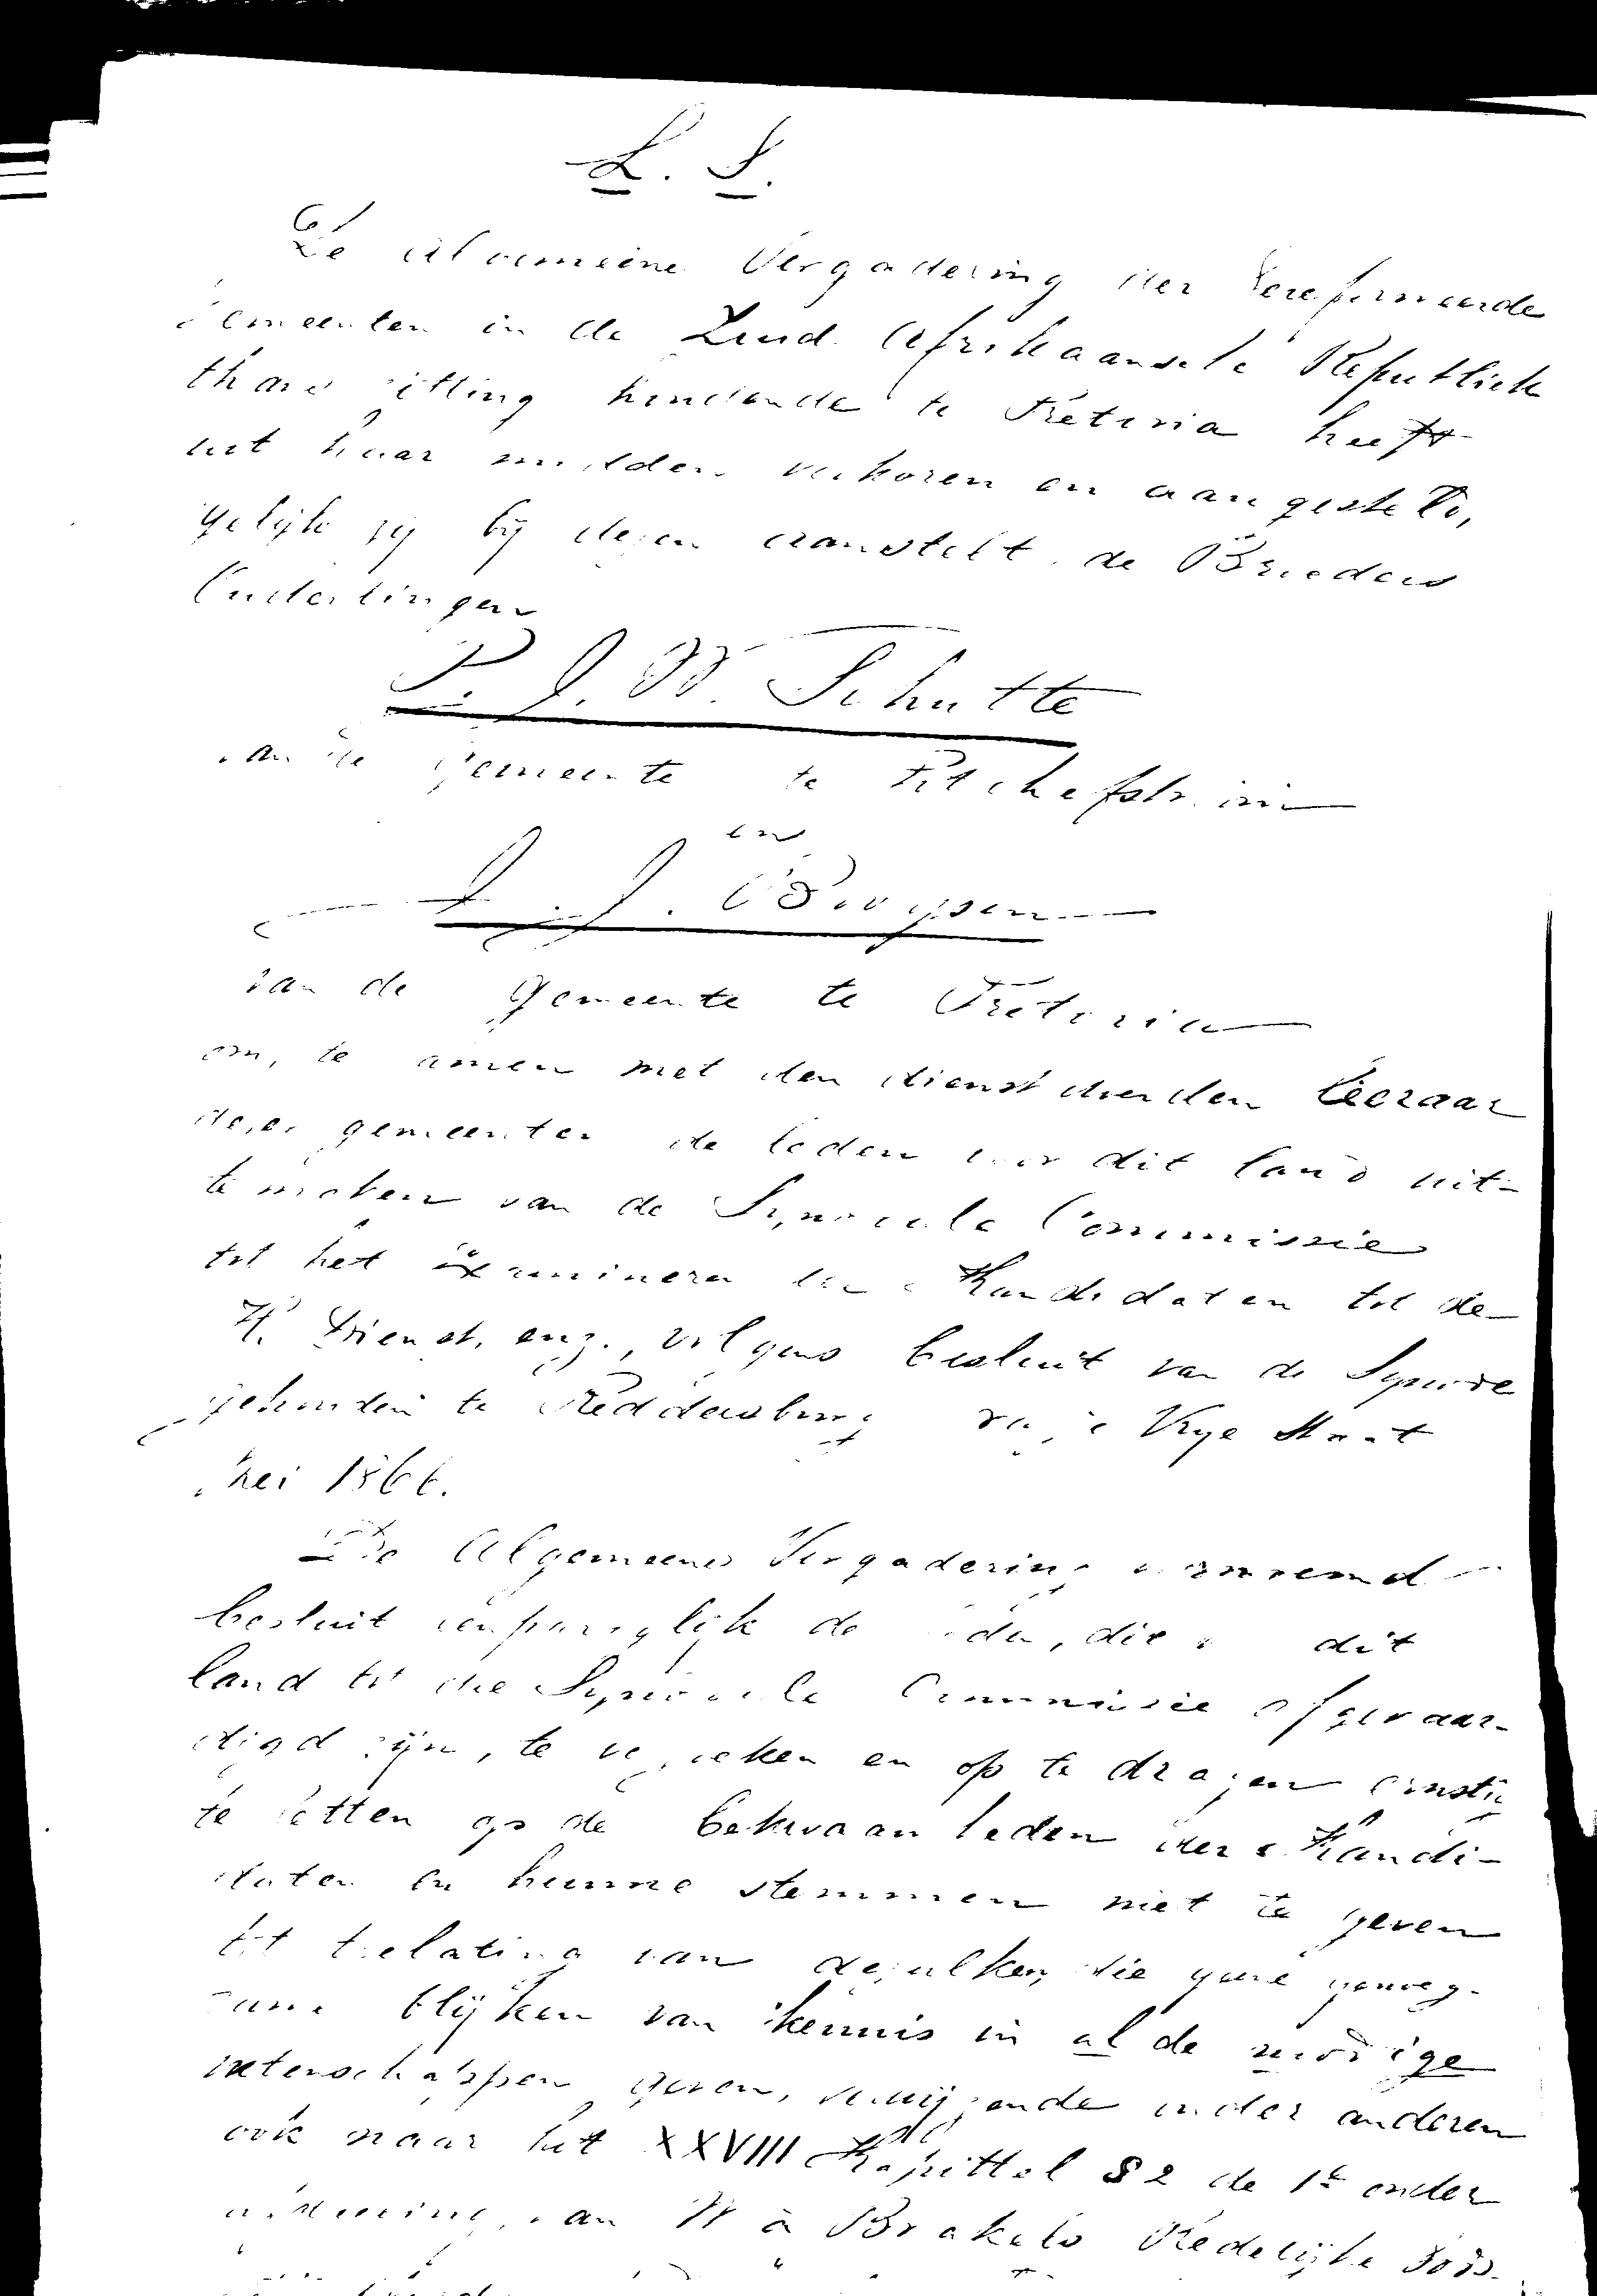 L. S.
De Algemeene Vergadering der Gereformeerde
Gemeenten in de Zuid Afrikaansche Republiek
thans zitting houdende te Pretoria heeft
uit haar midden verkoren en aangesteld,
gelijk zij bij dezen aanstelt, de Broeders
Ouderlingen
P. J. W. Schutte
van de Gemeente te Potchefstroom
en
J. J.
van de Gemeente te Pretoria
om, te zamen met den dienstdoenden Leeraar
dezer gemeenten de leden voor dit land uit-
te maken van de Synodale Commissie
tot het examineren der Kandidaten tot de
H. Dienst, enz., volgens besluit van de Synode
gehouden te Reddersburg Vrye Staat
Mei 1866.
De Algemeene Vergadering voornoemd
besluit eenpariglijk de leden, die in dit
land tot die Synodale Commissie afgevaar-
digd zijn, te verzoeken en op te dragen ernstig
te letten op de bekwaamheden der Kandi-
daten en hunne stemmen niet te geven
tot toelating van dezulken, die geene genoeg-
zame blijken van kennis in al de noodige
wetenschappen geven, verwijzende onder anderen
ook naar het XXVIII Kapittel § 2 de 1e onder
van W à Brakels Redelijke Gods-